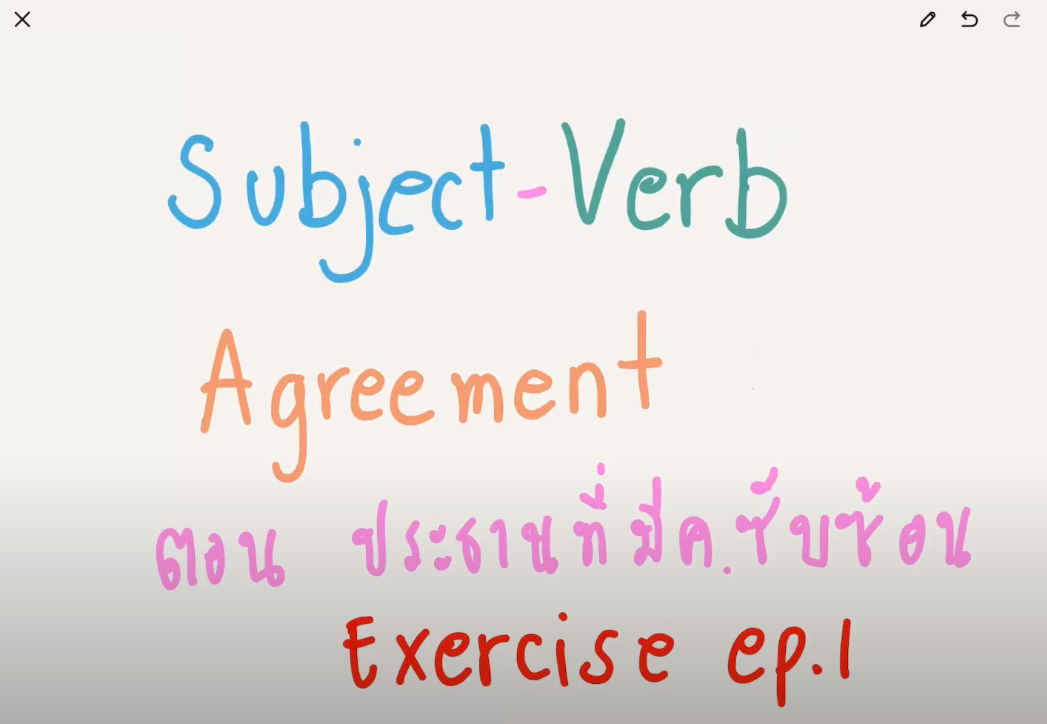 Subject-Verb
Agreement
ตอน ประธานที่มีค.ซับซ้อน
Exercise ep.1